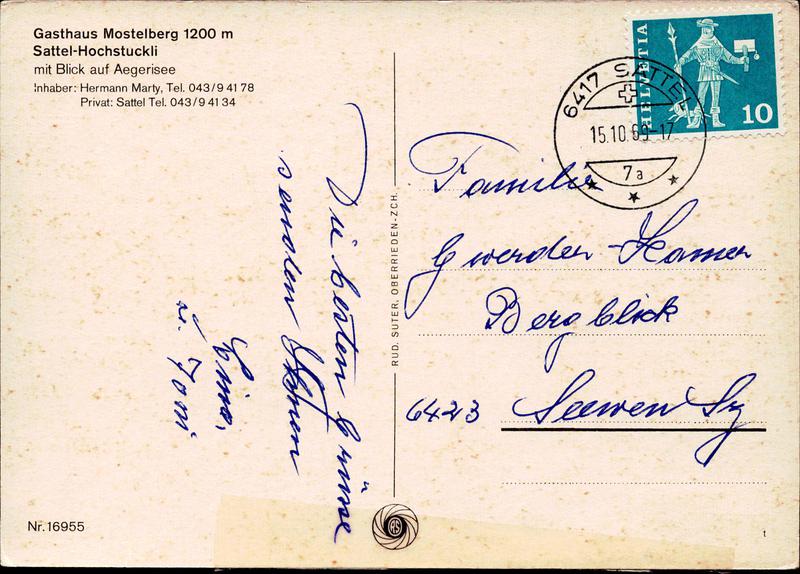 Gasthaus Mostelberg 1200 m
Sattel-Hochstuckli
mit Blick auf Aegerisee
Inhaber: Hermann Marty, Tel. 043/9 41 78
Privat: Sattel Tel. 043/9 41 34
Die besten Grüsse
senden Ihnen
u. Toni
Nr. 16955
RUD. SUTER, OBERRIEDEN-ZCH.
RS
HELVETIA
10
6417 SATTEL
15.10.69-17
7a
Familie
Gwerder-Kamer
Bergblick
6423 Seewen Sz
t